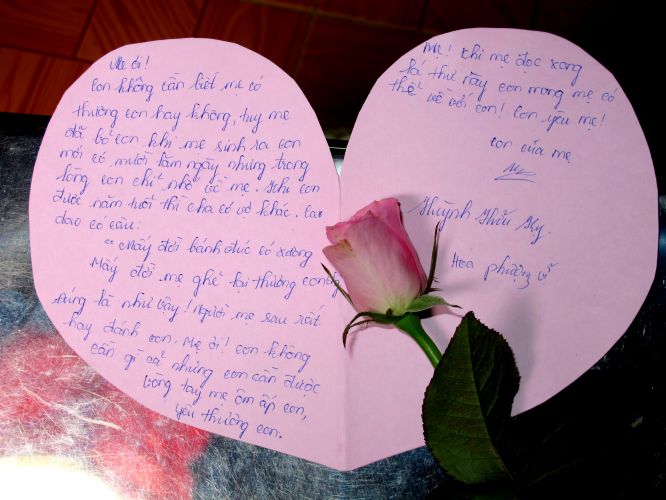 Mẹ ơi!
Con không cần biết mẹ có
thương con hay không, tuy mẹ
đã bỏ con khi mẹ sinh ra con
mới có mười lăm ngày nhưng trong
lòng con chỉ nhớ về mẹ. Khi con
được năm tuổi thì cha có vợ khác. Cao
dao có câu:
"Mấy đời bánh đúc có xương
Mấy đời mẹ ghẻ lại thương con
Đúng là như vậy! Người mẹ sau rất
hay đánh con. Mẹ ơi! con không
cần gì cả nhưng con cần được
vòng tay mẹ ôm ấp con,
yêu thương con.
Mẹ! Khi mẹ đọc xong
lá thư này con mong mẹ có
thể về với con! Con yêu mẹ!
con của mẹ
Huỳnh Hữu
Hoa phượng vĩ